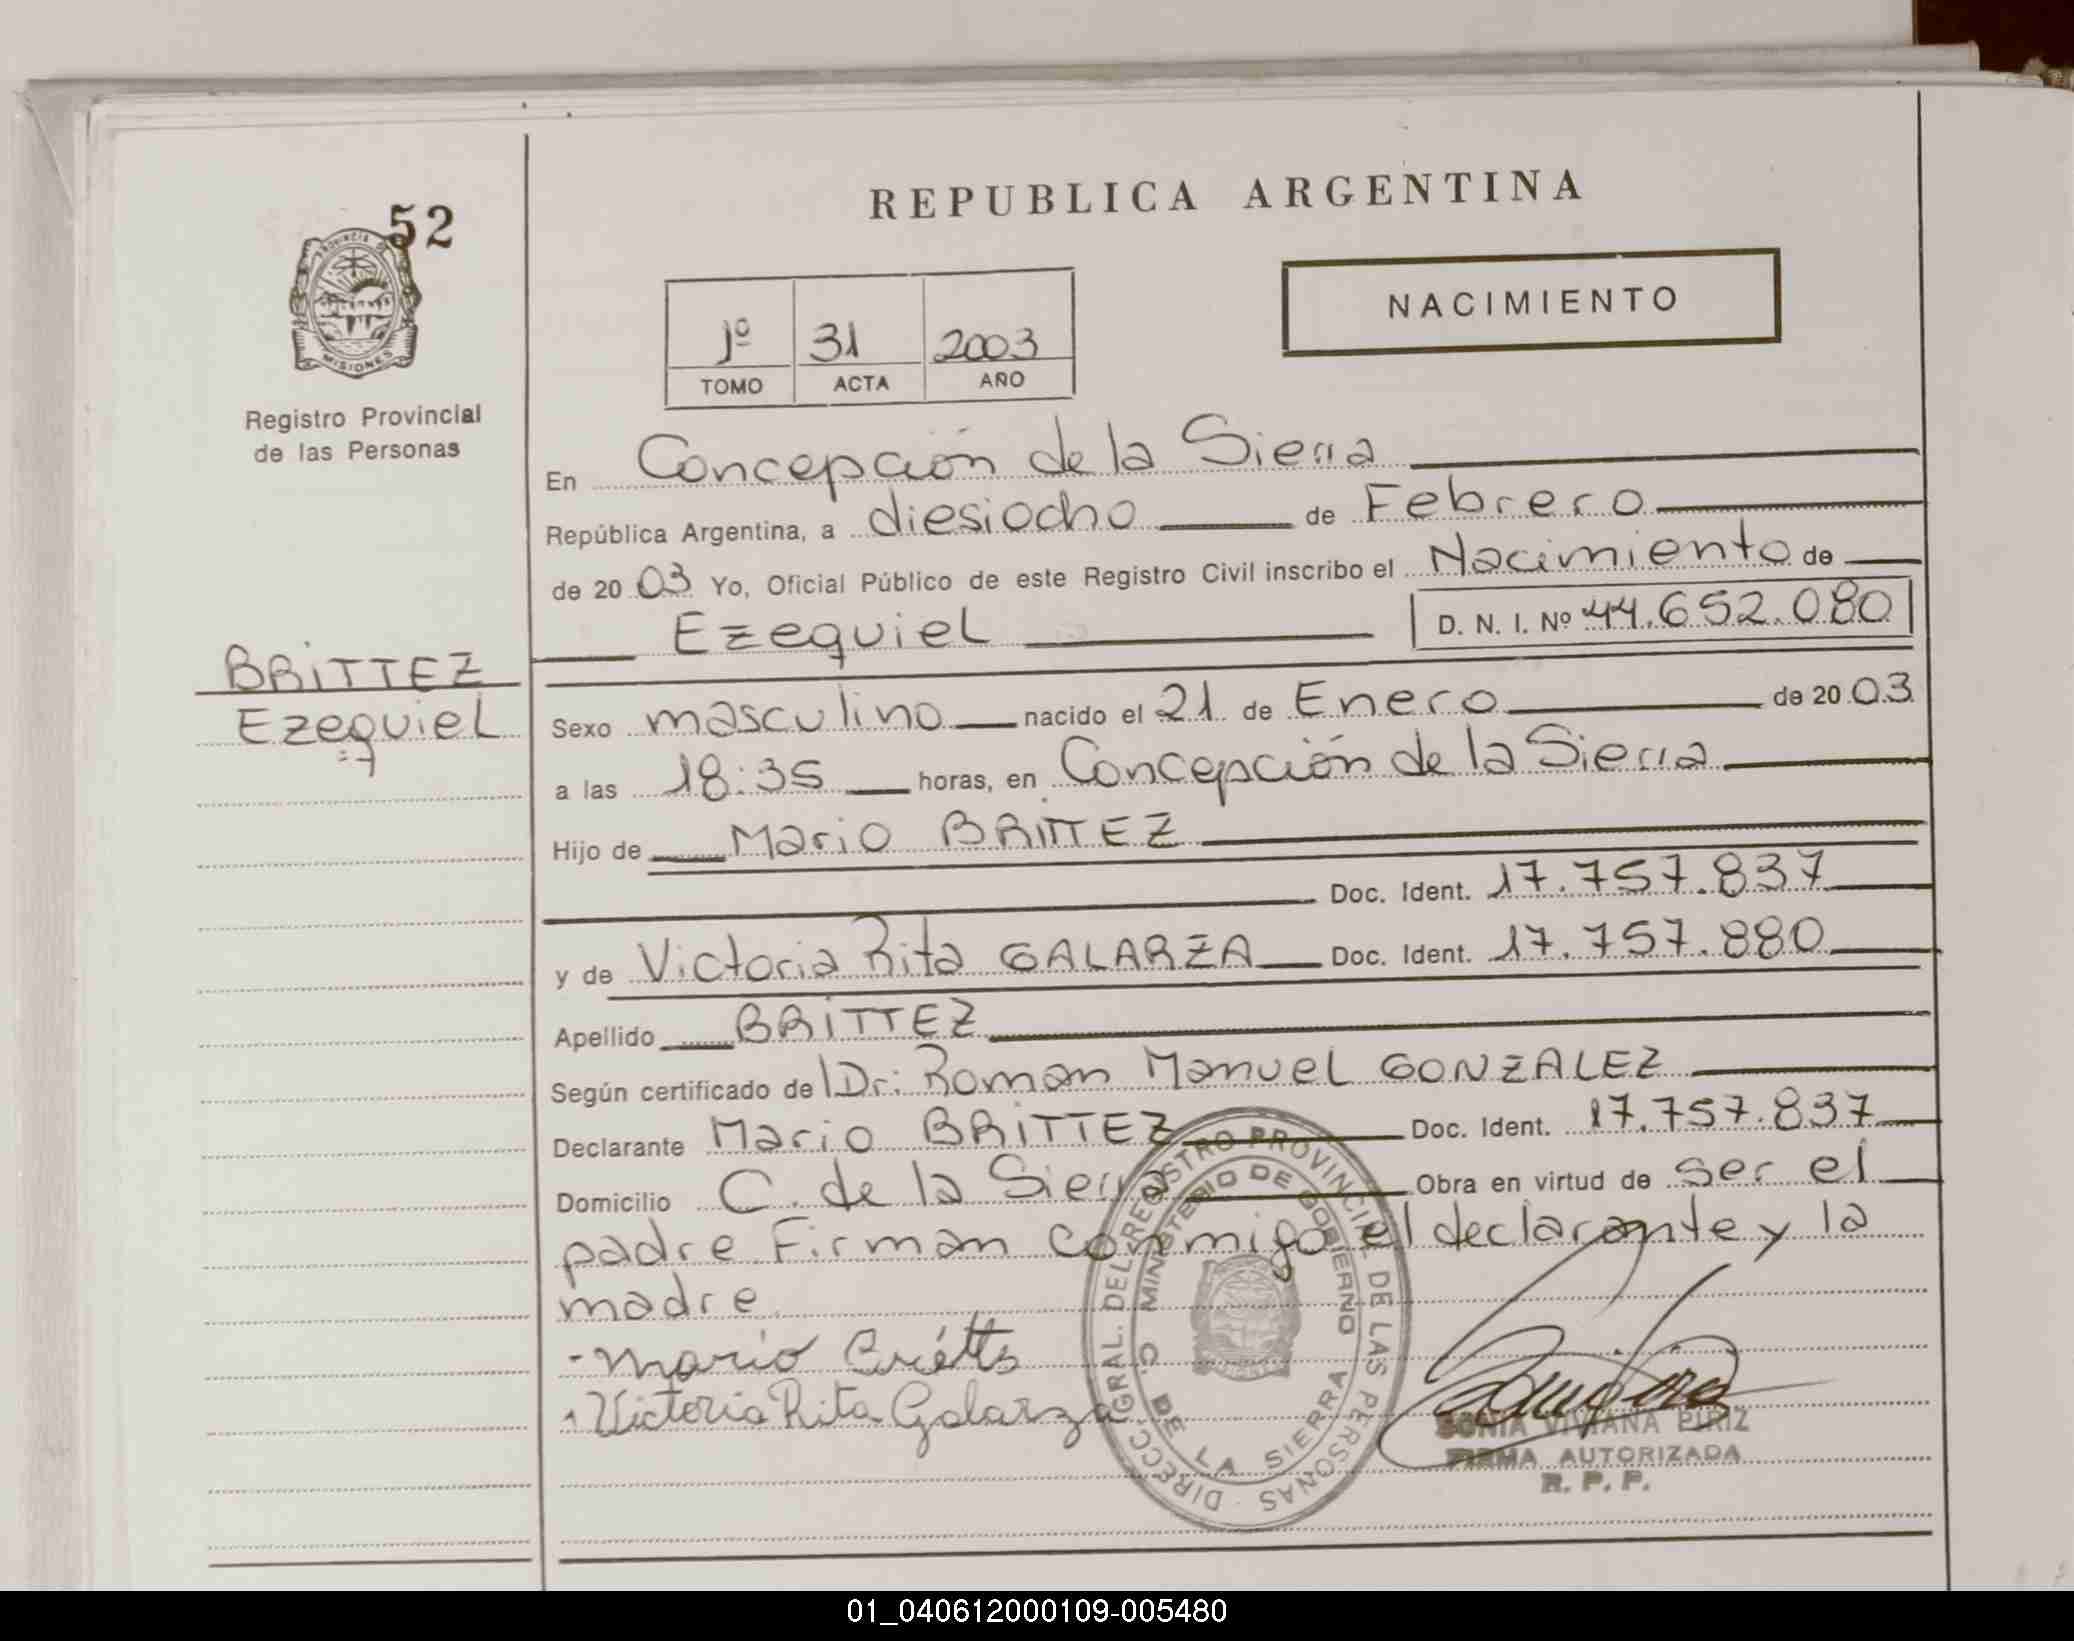 52
PROVINCIA DE
MISIONES
Registro Provincial
de las Personas
BRITTEZ
Ezequiel
REPUBLICA ARGENTINA
NACIMIENTO
1º 31 2003
TOMO ACTA AÑO
En Concepción de la Sierra
República Argentina, a diesiocho de Febrero
de 20 03 Yo, Oficial Público de este Registro Civil inscribo el Nacimiento de
Ezequiel D. N. I. Nº 44.652.080
Sexo masculino nacido el 21 de Enero de 20 03
a las 18:35 horas, en Concepción de la Sierra
Hijo de Mario BRITTEZ
Doc. Ident. 17.757.837
y de Victoria Rita GALARZA Doc. Ident. 17.757.880
Apellido BRITTEZ
Según certificado de Dr: Roman Manuel GONZALEZ
Declarante Mario BRITTEZ Doc. Ident. 17.757.837
Domicilio C. de la Sierra Obra en virtud de ser el
padre Firman conmigo el declarante y la
madre.
Mario
Victoria Rita Galarza
DIRECC. GRAL. DEL REGISTRO PROVINCIAL DE LAS PERSONAS
MINISTERIO DE GOBIERNO
C. DE LA SIERRA
SONIA VIVIANA PIRIZ
FIRMA AUTORIZADA
R. P. P.
01_040612000109-005480